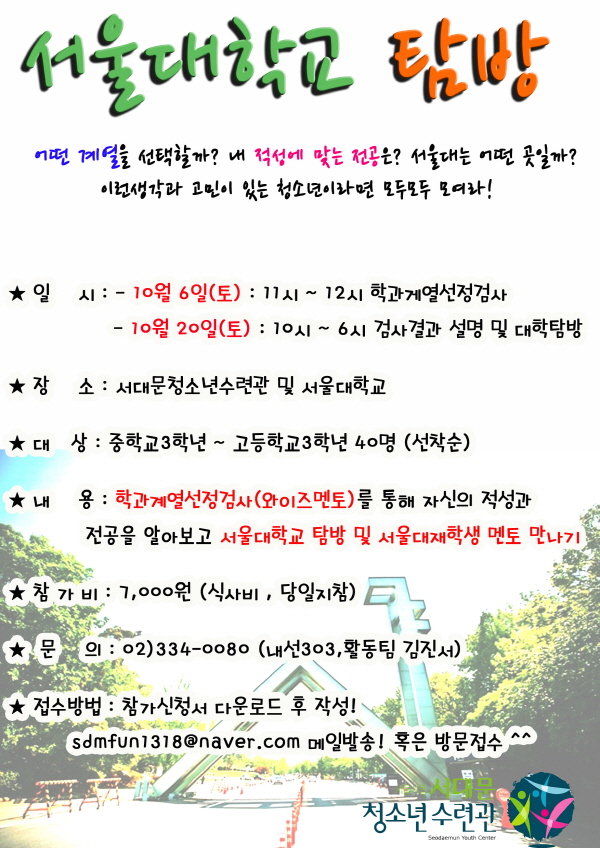 서울대학교 탐방
어떤 계열을 선택할까? 내 적성에 맞는 전공은? 서울대는 어떤 곳일까?
이런생각과 고민이 있는 청소년이라면 모두모두 모여라!
★ 일 시 : - 10월 6일(토) : 11시 ~ 12시 학과계열선정검사
- 10월 20일(토) : 10시 ~ 6시 검사결과 설명 및 대학탐방
★ 장 소 : 서대문청소년수련관 및 서울대학교
★ 대 상 : 중학교3학년 ~ 고등학교3학년 40명 (선착순)
★ 내 용 : 학과계열선정검사(와이즈멘토)를 통해 자신의 적성과
전공을 알아보고 서울대학교 탐방 및 서울대재학생 멘토 만나기
★ 참 가 비 : 7,000원 (식사비 , 당일지참)
★ 문 의 : 02)334-0080 (내선303,활동팀 김진서)
★ 접수방법 : 참가신청서 다운로드 후 작성!
sdmfun1318@naver.com 메일발송! 혹은 방문접수 ^^
서대문
청소년수련관
Seodaemun Youth Center